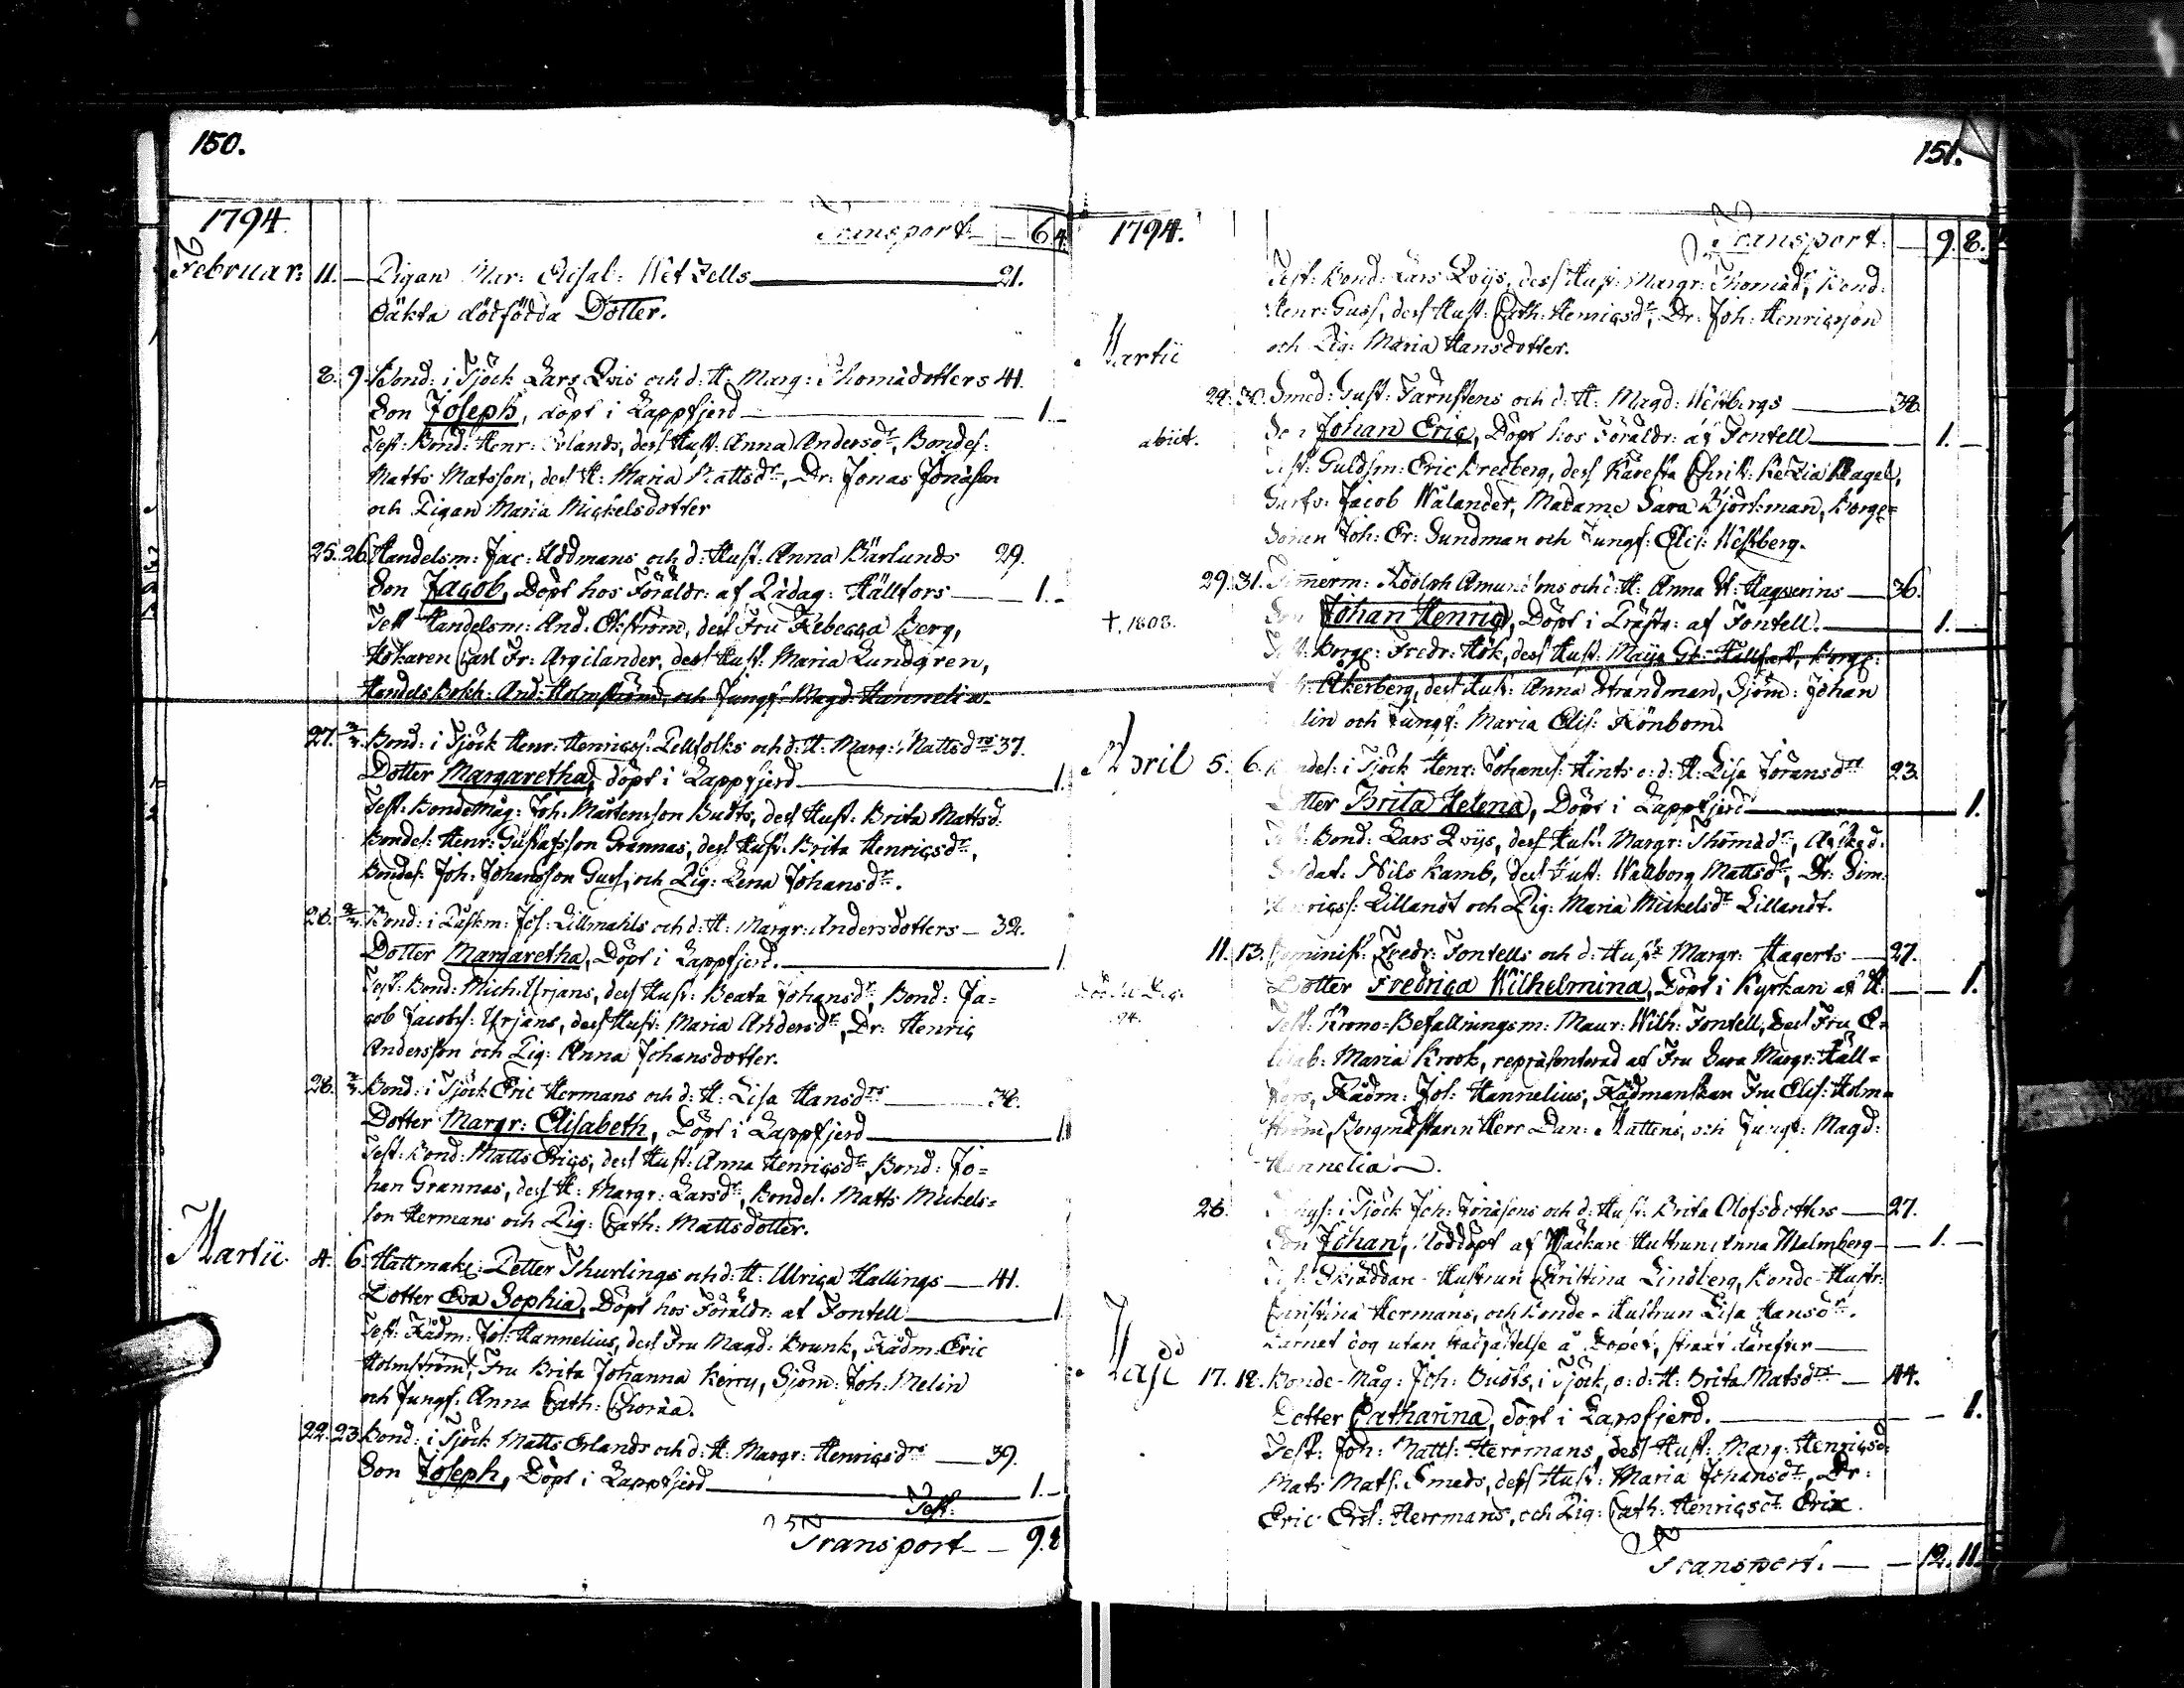 150.
1794.
Transport — 6. 4.
Februar: 11. — Pigan Mar: Elisab: Wetzells — 21.
oäkta dödfödda Dotter.
8. 9. Bond: i Tjöck Lars Qvis och d: H: Marg: Thomädotters 41.
Son Joseph, döpt i Lappfjerd — 1. —
Test: Bond: Henr: Erlands, dess Hust: Anna Andersdr, Bondes:
Matts Matsson, des H: Maria Mattsdr, Dr: Jonas Jonasson
och Pigan Maria Mickelsdotter
25. 26. Handelsm: Jac: Uddmans och d: Hust: Anna Bärlunds 29.
Son Jacob, Döpt hos Föräldr: af Pädag: Hällfors — 1. —
Test Handelsm: And. Ekström, des Fru Rebecca Berg,
Hökaren Carl Fr: Argilander, dess Hust: Maria Lundgren,
Handelsbokh: And: Holmström, och Jungf: Magd: Hannelia.
27. 2/3. Bond: i Tjöck Henr: Henricss: Pellfolks och d: H: Marg: Mattsdrs 37.
Dotter Margaretha, döpt i Lappfjerd — 1.
Test: Bondemåg: Joh: Mårtensson Budts, des Hust: Brita Mattsd:
Bondes: Henr: Gustafsson Grannas, des Hust: Brita Henricsdr,
Bondes: Joh: Johansson Guss, och Pig: Lena Johansdr.
26. 2/3. Bond: i Påskm: Jos: Lillmahls och d: H: Margr: Andersdotters — 32.
Dotter Margaretha, Döpt i Lappfjerd. — 1
Test: Bond: Mich: Urjans, des Hust: Beata Johansdr, Bond: Ja=
cob Jacobs: Urjans, des Hust: Maria Andersdr, Dr: Henric
Andersson och Pig: Anna Johansdotter.
28. 2/3. Bond: i Tjöck Eric Hermans och d: H: Lisa Hansdrs — 34.
Dotter Margr: Elisabeth, Döpt i Lappfjerd — 1
Test: Bond: Matts Erics, des Hust: Anna Henricsdr, Bond: Jo=
han Grannas, des H: Margr: Larsdr, Bondes: Matts Mickels=
son Hermans och Pig: Cath: Mattsdotter.
Martii. 4. 6. Hattmak: Petter Thurlings och d: H: Ulrica Hallings — 41.
Dotter Eva Sophia, Döpt hos Föräldr: af Fontell — 1
Test: Rådm: Jos: Hannelius, des Fru Magd: Brunk, Rådm: Eric
Holmström, Fru Brita Johanna Kerry, Sjöm: Joh: Melin
och Jungf: Anna Cath: Choräa.
22. 23. Bond: i Tjöck Matts Erlands och d: H: Margr: Henricsdrs — 39.
Son Joseph, Döpt i Lappfjerd — 1. —
Test:
Transport — 9. 8
151.
1794.
Transport. — 9. 8.
Test: Bond: Lars Qvijs, dess Hust: Margr: Thomädr, Bond:
Henr: Guss, dess Hust: Cath: Henricsdr, Dr: Joh: Henricsson
och Pig: Maria Hansdotter.
Martii
29. 30. Smed: Gust: Färnstens och d: H: Magd: Westbergs — 38.
abiit. Son Johan Eric, Döpt hos Föräldr: af Fontell — 1. —
Test: Guldsm: Eric Bredberg, dess Käresta Christ: Kezia Nagel,
Garfv: Jacob Wålander, Madame Sara Björkman, Borge=
Sonen Joh: Er: Sundman och Jungf: Elis: Westberg.
29. 31. Timmerm: Adolph Amundsons och d: H: Anna H: Hagverins — 36.
†. 1808. Son Johan Henric, Döpt i Prästg: af Fontell. — 1. —
Test: Borge: Fredr: Hök, dess Hust: Maija St: Hällfast, Borge:
Åkerberg, dess Hust: Anna Strandman, Sjöm: Johan
lin och Jungf: Maria Elis: Rönbom.
April 5. 6. Bondes: i Tjöck Henr: Johanss: Hints o: d: H: Lisa Göransdrs 23.
Dotter Brita Helena, Döpt i Lappfjerd — 1.
Test: Bond: Lars Qvijs, dess Hust: Margr: Thomädr, Afsked:
Soldat: Nils Kamb, des Hust: Wallborg Mattsdr, Dr: Sim:
Henricss: Lillandt och Pig: Maria Mickelsdr Lillandt.
11. 13. Comminist: Fredr: Fontells och d: Hustr Margr: Hagerts — 27.
Dotter Fredrica Wilhelmina, Döpt i Kyrkan af H. — 1.
94. Test: Krono-Befallningsm: Maur: Wilh: Fontell, Des Fru E=
lisab: Maria Krook, repräsenterad af Fru Sara Margr: Häll=
fors, Rådm: Jos: Hannelius, Rådmanskan Fru Elis: Holm=
ström, Borgmästaren Herr Dan: Mattens, och Jungf: Magd:
Hannelia.
26. i Tjöck Joh: Jonasons och d: Hust: Brita Olofsdotters — 27.
Son Johan, Nöddöpt af Wäckare Hustrun Anna Malmberg — 1. —
Test: Skräddare-Hustrun Christina Lindberg, Bonde-Hustr:
Christina Hermans, och Bonde-Hustrun Lisa Hansdr.
Barnet dog utan stadfästelse å Dopet, straxt därefter —
Maji 17. 18. Bonde-Måg: Joh: Budts, i Tjöck, o: d: H: Brita Matsdrs — 44.
Dotter Catharina, döpt i Lappfjerd. — 1.
Test: Joh: Matts: Herrmans, dess Hust: Marg: Henricsd:
Mats Mats: Smeds, dess Hust: Maria Johansdr, Dr:
Eric Ers: Herrmans, och Pig: Cath: Henricsdr Erix.
Transport. — 12. 11.